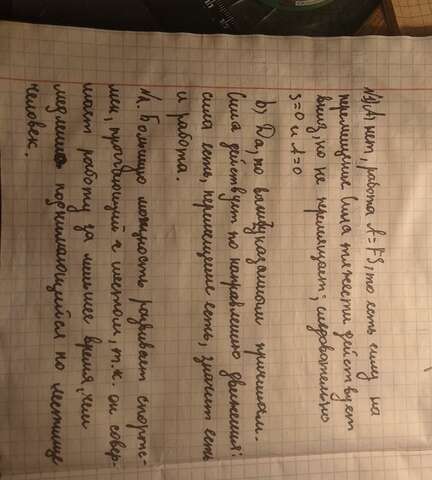 №3(А) нет, работа А=FS, то есть силу на
перемещение. Сила тяжести действует
вниз, но не перемещает; следовательно
S=0 и А=0
b) Да, по вышеуказанным причинам.
Сила действует по направлению движения:
сила есть, перемещение есть, значит есть
и работа.
№1. Большую мощность развивает спортс-
мен, прыгающий с шестом, т.к. он совер-
шает работу за меньшее время, чем
медленно поднимающийся по лестнице
человек.